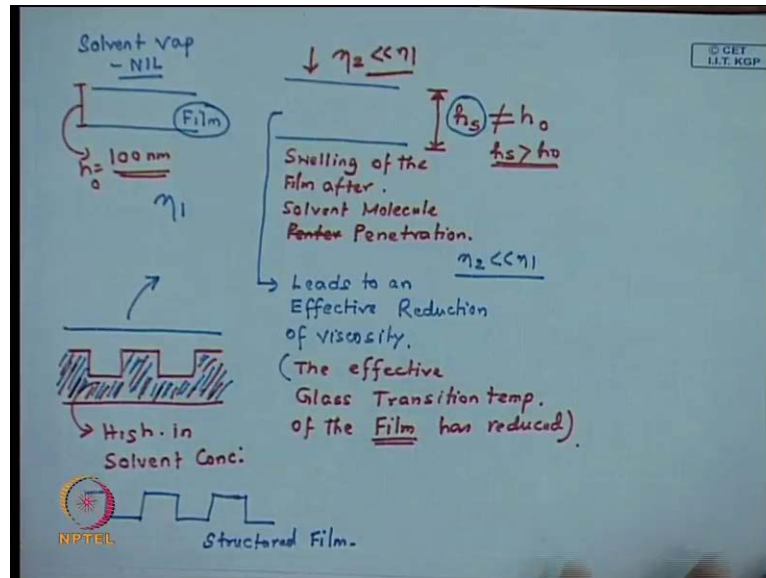 Solvent Vap
- NIL
Film
h₀ = 100 nm
η1
↓ η2 << η1
hs ≠ h₀
hs > h₀
Swelling of the
Film after.
Solvent Molecule
Penetration.
η2 << η1
→ Leads to an
Effective Reduction
of viscosity.
(The effective
Glass Transition temp.
of the Film has reduced).
→ High. in
Solvent Conc:
Structured Film.
© CET
I.I.T. KGP
NPTEL